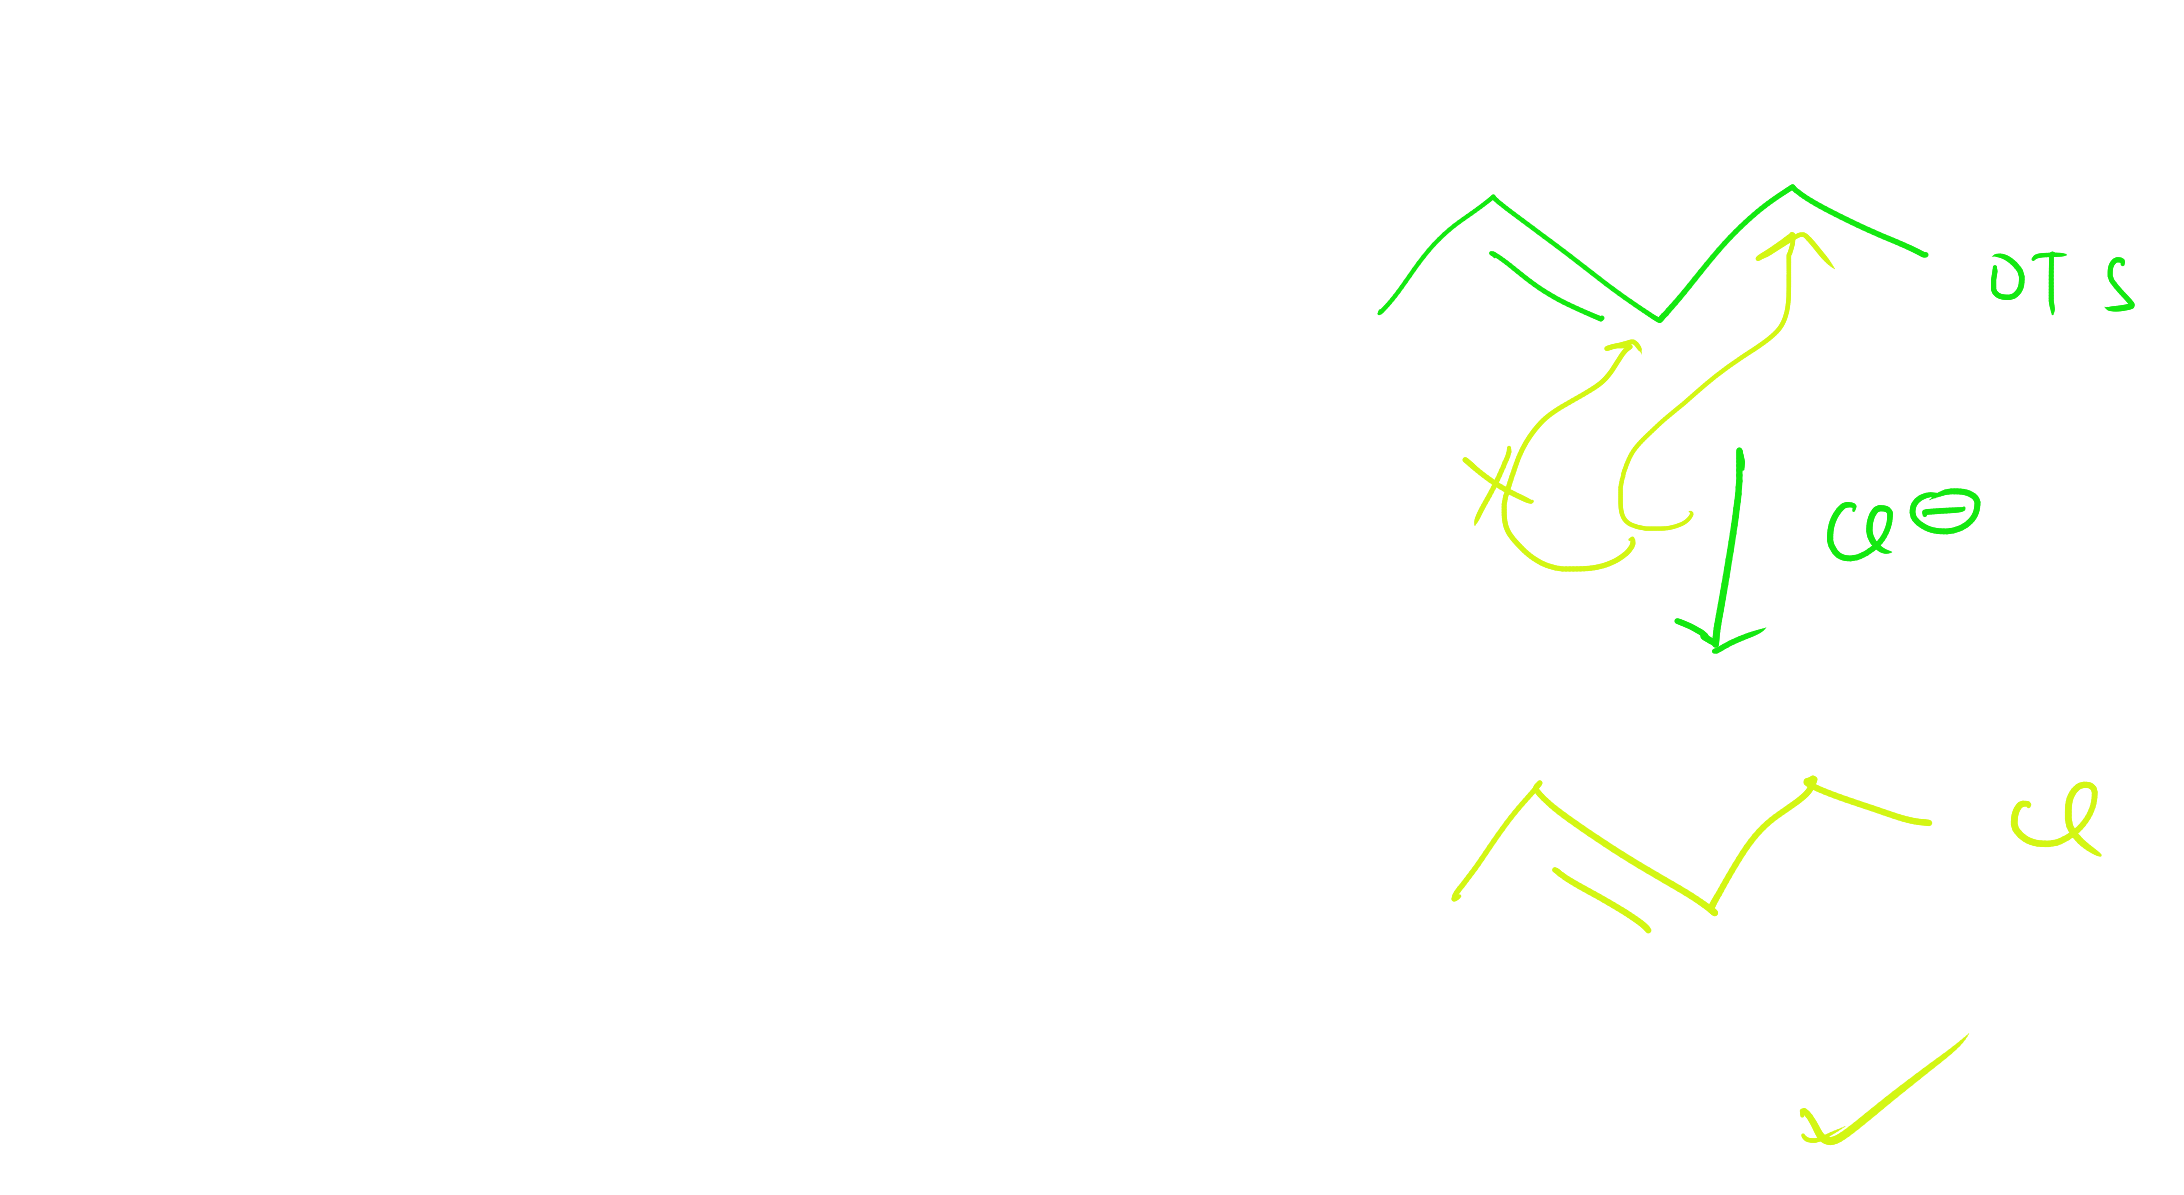 OTS
Cl⊖
Cl